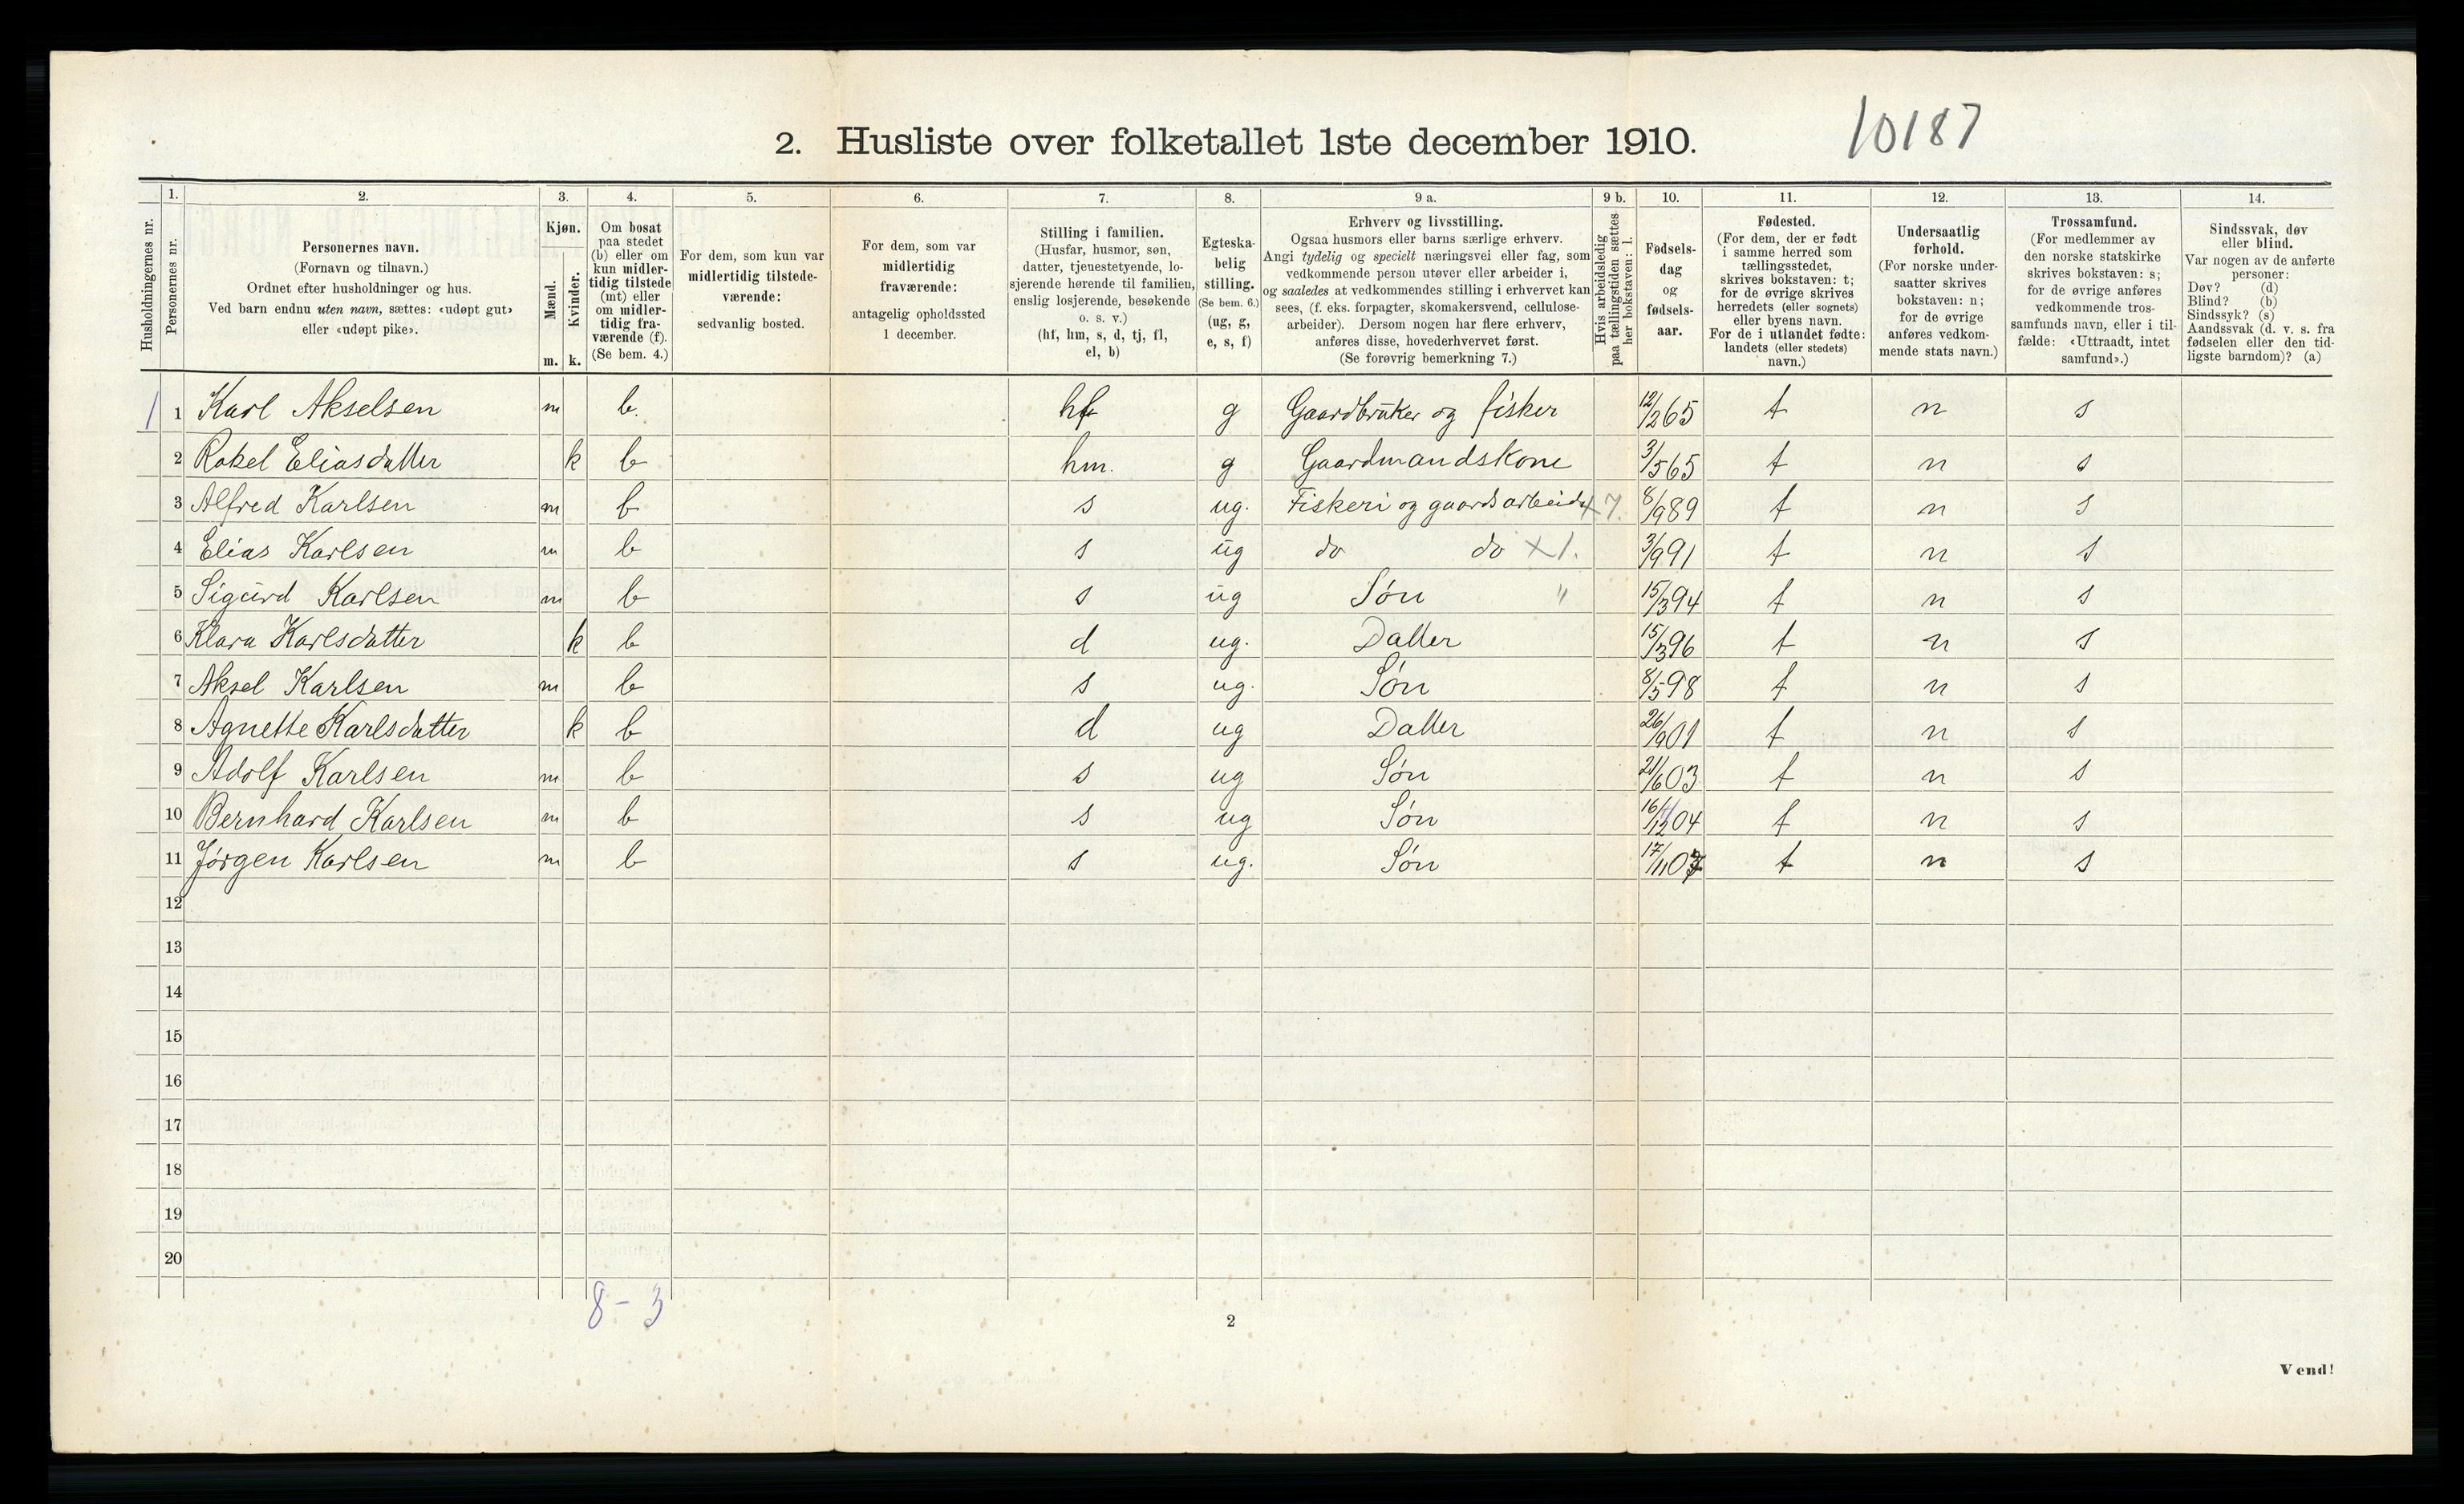 10187
2. Husliste over folketallet 1ste december 1910.
Husholdningernes nr.
1.
Personernes nr.
2.
Personernes navn.
(Fornavn og tilnavn.)
Ordnet efter husholdninger og hus.
Ved barn endnu uten navn, sættes: «udøpt gut»
eller «udøpt pike».
3.
Kjøn.
Mænd.
m.
Kvinder.
k.
4.
Om bosat
paa stedet
(b) eller om
kun midler-
tidig tilstede
(mt) eller
om midler-
tidig fra-
værende (f).
(Se bem. 4.)
5.
For dem, som kun var
midlertidig tilstede-
værende:
sedvanlig bosted.
6.
For dem, som var
midlertidig
fraværende:
antagelig opholdssted
1 december.
7.
Stilling i familien.
(Husfar, husmor, søn,
datter, tjenestetyende, lo-
sjerende hørende til familien,
enslig losjerende, besøkende
o. s. v.)
(hf, hm, s, d, tj, fl,
el, b)
8.
Egteska-
belig
stilling.
(Se bem. 6.)
(ug, g,
e, s, f)
9 a.
Erhverv og livsstilling.
Ogsaa husmors eller barns særlige erhverv.
Angi tydelig og specielt næringsvei eller fag, som
vedkommende person utøver eller arbeider i,
og saaledes at vedkommendes stilling i erhvervet kan
sees, (f. eks. forpagter, skomakersvend, cellulose-
arbeider). Dersom nogen har flere erhverv,
anføres disse, hovederhvervet først.
(Se forøvrig bemerkning 7.)
9 b.
Hvis arbeidsledig
paa tællingstiden sættes
her bokstaven: l.
10.
Fødsels-
dag
og
fødsels-
aar.
11.
Fødested.
(For dem, der er født
i samme herred som
tællingsstedet,
skrives bokstaven: t;
for de øvrige skrives
herredets (eller sognets)
eller byens navn.
For de i utlandet fødte:
landets (eller stedets)
navn.)
12.
Undersaatlig
forhold.
(For norske under-
saatter skrives
bokstaven: n;
for de øvrige
anføres vedkom-
mende stats navn.)
13.
Trossamfund.
(For medlemmer av
den norske statskirke
skrives bokstaven: s;
for de øvrige anføres
vedkommende tros-
samfunds navn, eller i til-
fælde: «Uttraadt, intet
samfund».)
14.
Sindssvak, døv
eller blind.
Var nogen av de anførte
personer:
Døv? (d)
Blind? (b)
Sindssyk? (s)
Aandssvak (d. v. s. fra
fødselen eller den tid-
ligste barndom)? (a)
1 1 Karl Akselsen m b. hf g Gaardbruker og fisker 12/2 65 t n s
2 Rakel Eliasdatter k b hm. g Gaardmandskone 3/5 65 t n s
3 Alfred Karlsen m b s ug. Fiskeri og gaardsarbeide x 7. 8/9 89 t n s
4 Elias Karlsen m b s ug do do x 1. 3/9 91 t n s
5 Sigurd Karlsen m b s ug Søn " 15/3 94 t n s
6 Klara Karlsdatter k b d ug. Datter 15/3 96 t n s
7 Aksel Karlsen m b s ug. Søn 8/5 98 t n s
8 Agnette Karlsdatter k b d ug Datter 26/9 01 t n s
9 Adolf Karlsen m b s ug Søn 21/6 03 t n s
10 Bernhard Karlsen m b s ug Søn 16/12 04 t n s
11 Jørgen Karlsen m b s ug. Søn 17/11 07 t n s
12
13
14
15
16
17
18
19
20
8 - 3
2
Vend!